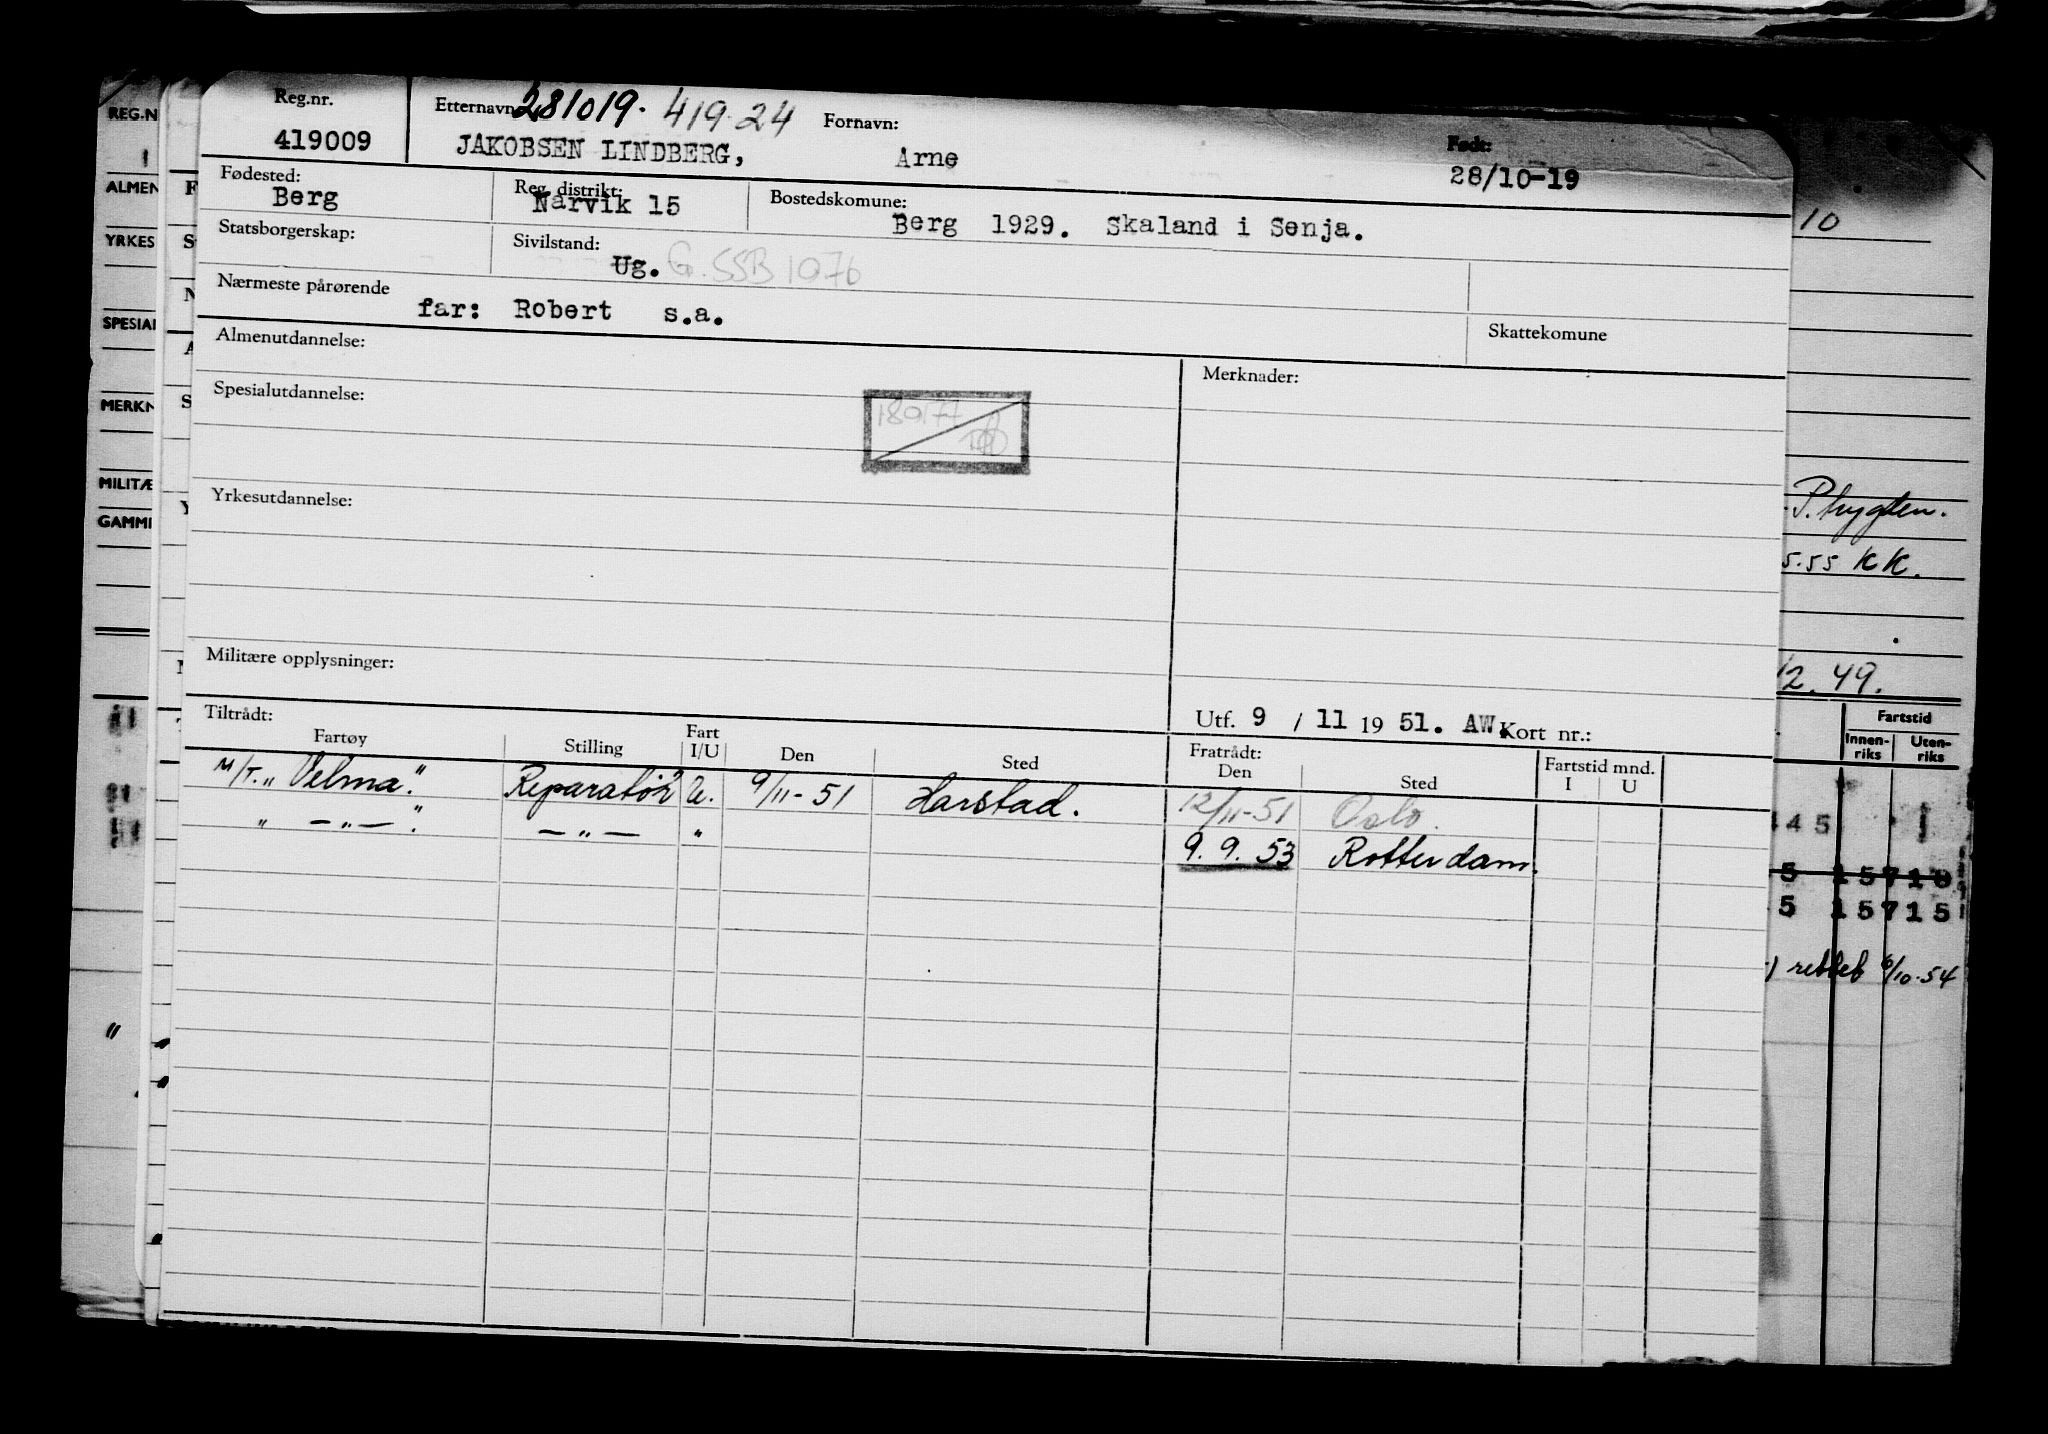 Reg.nr. Etternavn 281019. 419 24 Fornavn: Født:
419009 JAKOBSEN LINDBERG, Arne 28/10-19
Fødested: Reg. distrikt: Bostedskomune:
Berg Narvik 15 Berg 1929. Skaland i Senja.
Statsborgerskap: Sivilstand:
Ug. G. SSB 1076
Nærmeste pårørende
far: Robert s.a.
Skattekomune
Almenutdannelse: Merknader:
Spesialutdannelse:
Yrkesutdannelse:
Militære opplysninger:
Utf. 9 / 11 19 51. AW. Kort nr.:
Tiltrådt: Fratrådt: Fartstid mnd.
Fartøy Stilling Fart I/U Den Sted Den Sted I U
M/T. „Velma." Reparatör U. 9/11-51 Harstad. 12/11-51 Oslo.
" — " — ". — " — " 9. 9. 53 Rotterdam.
REG.N
ALMEN
YRKES
SPESIAL
MERKN
MILITÆ
GAMM
10
5.55 KK.
12. 49.
Fartstid
Innen-riks Uten-riks
445
5 15715
rettet 6/10-54